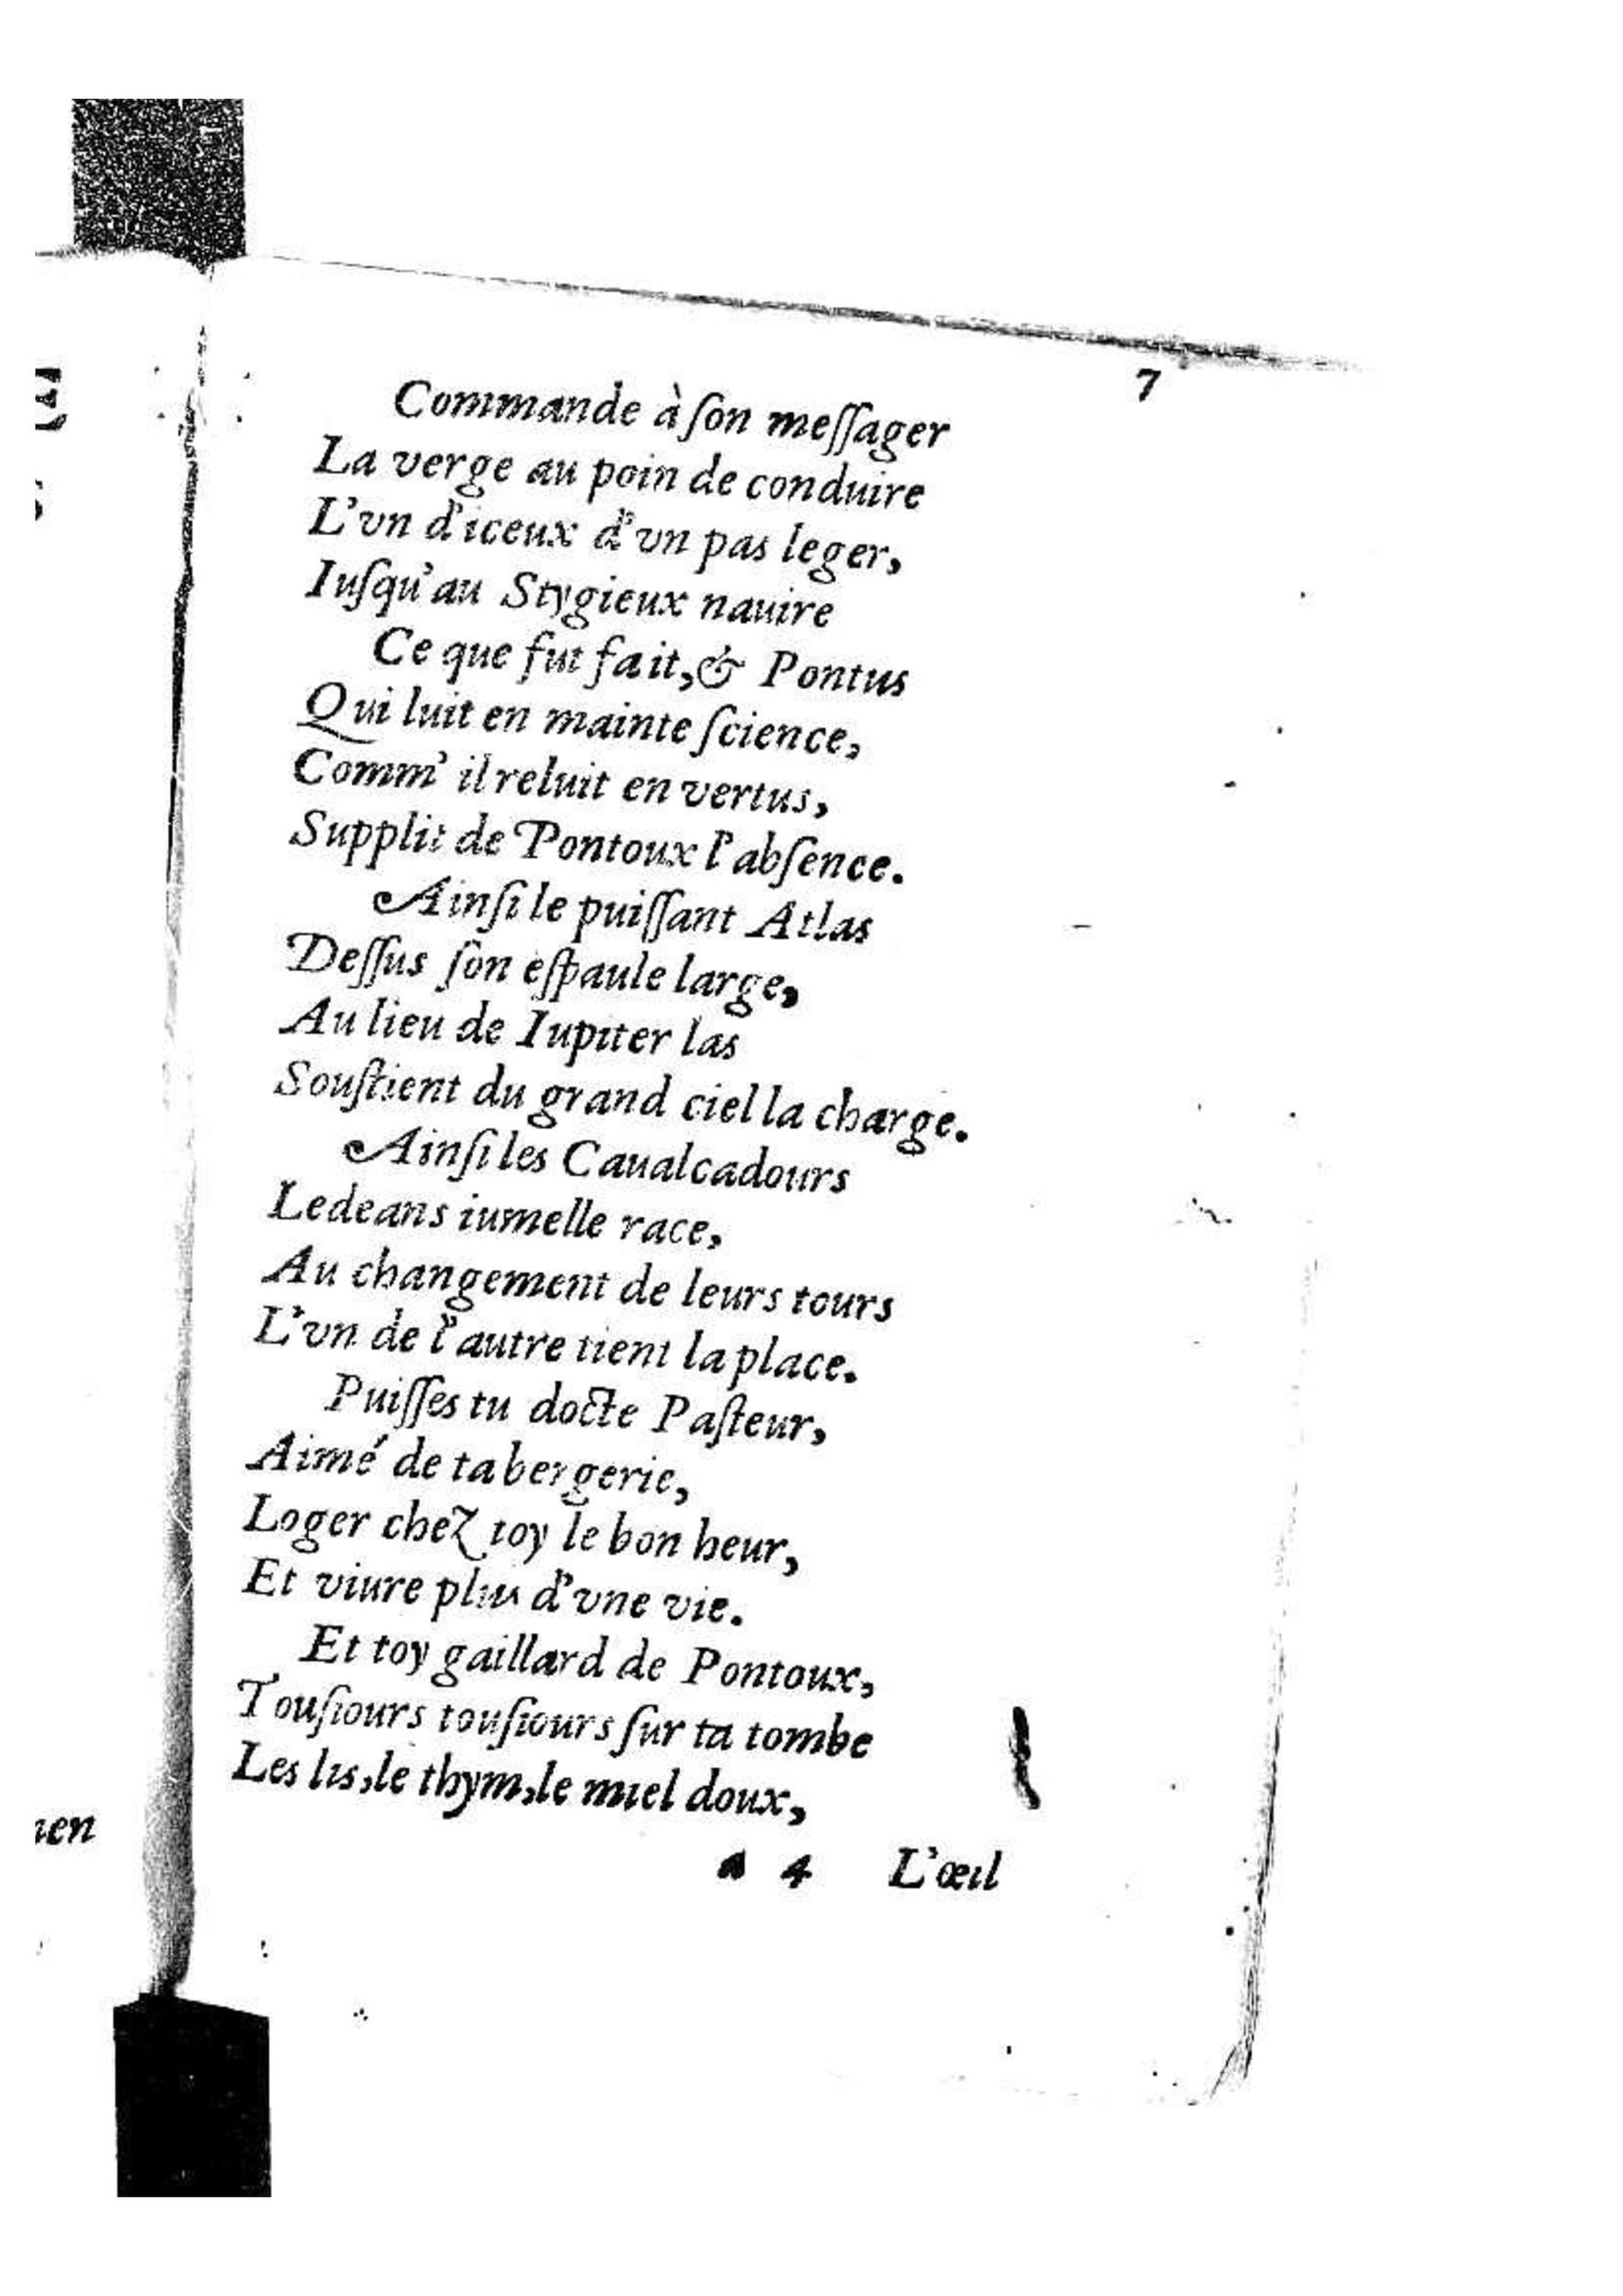 7
Commande à ſon meſſager
La verge au poin de conduire
L'vn d'iceux d'vn pas leger,
Iuſqu'au Stygieux nauire
Ce que fut fait, & Pontus
Qui luit en mainte ſcience,
Comm' il reluit en vertus,
Supplit de Pontoux l'abſence.
Ainſi le puiſſant Atlas
Deſſus ſon eſpaule large,
Au lieu de Iupiter las
Souſtient du grand ciel la charge.
Ainſi les Caualcadours
Ledeans iumelle race,
Au changement de leurs tours
L'vn de l'autre tient la place.
Puiſſes tu docte Paſteur,
Aimé de ta bergerie,
Loger chez toy le bon heur,
Et viure plus d'vne vie.
Et toy gaillard de Pontoux,
Touſiours touſiours ſur ta tombe
Les lis, le thym, le miel doux,
a 4 L'œil